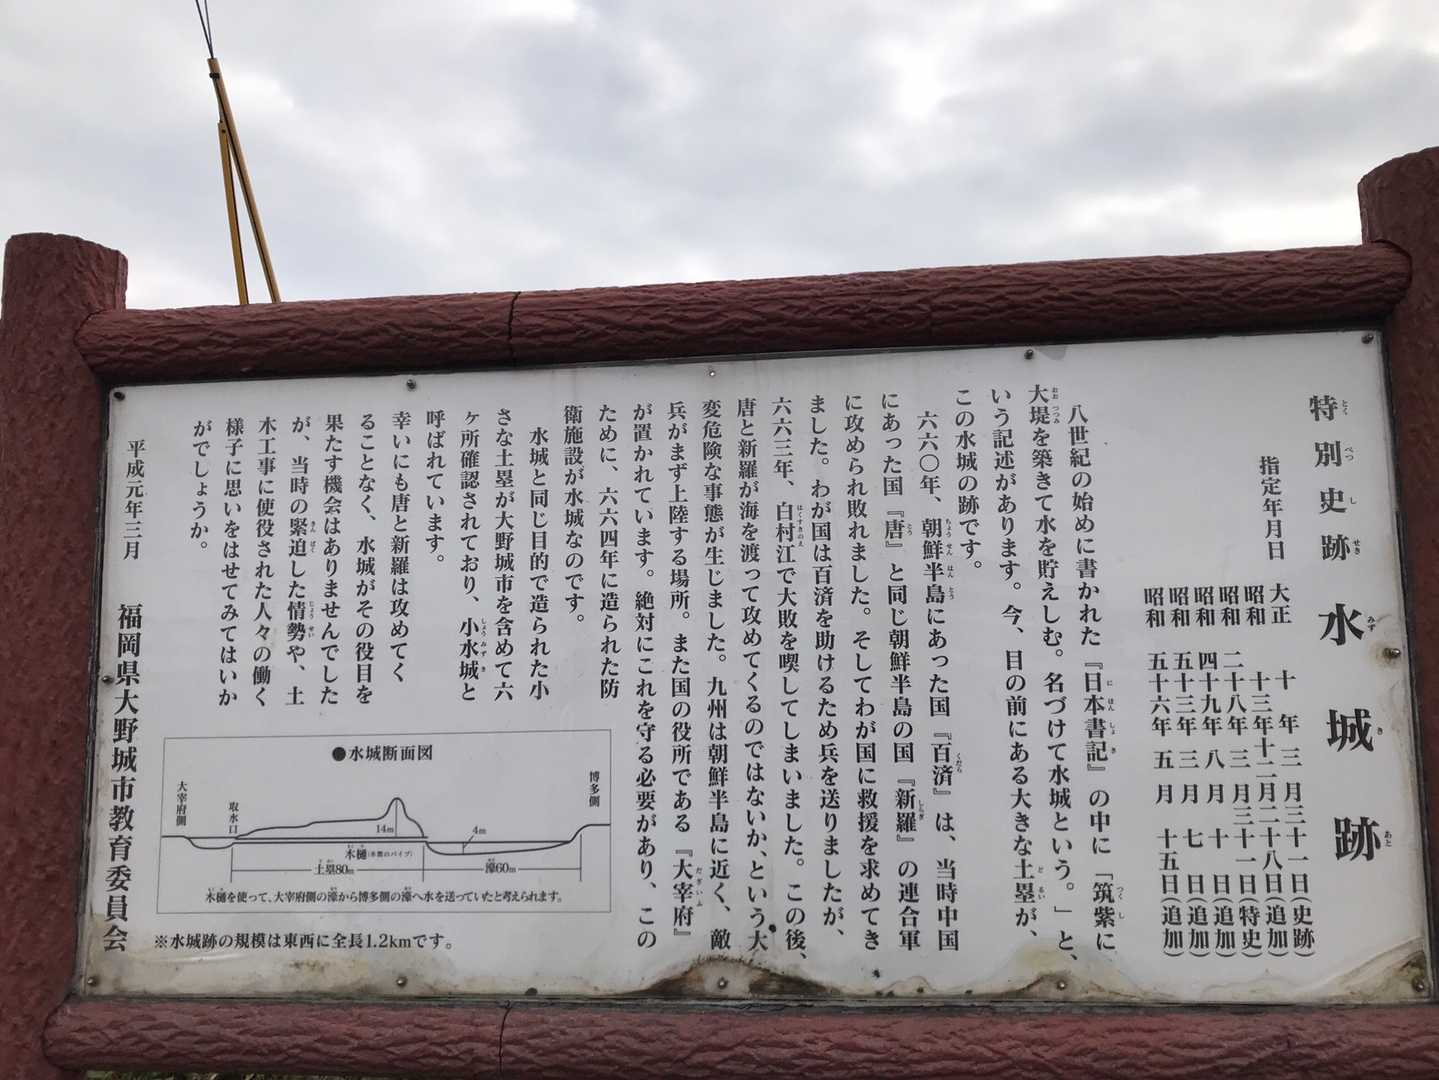 特別史跡 水城跡
指定年月日
大正 十年 三月三十一日(史跡)
昭和 十三年十二月二十八日(追加)
昭和 二十八年 三月三十一日(特史)
昭和 四十九年 八月 十日(追加)
昭和 五十三年 三月 七日(追加)
昭和 五十六年 五月 十五日(追加)
八世紀の始めに書かれた『日本書記』の中に「筑紫に
大堤を築きて水を貯えしむ。名づけて水城という。」と、
いう記述があります。今、目の前にある大きな土塁が、
この水城の跡です。
六六〇年、朝鮮半島にあった国『百済』は、当時中国
にあった国『唐』と同じ朝鮮半島の国『新羅』の連合軍
に攻められ敗れました。そしてわが国に救援を求めてき
ました。わが国は百済を助けるため兵を送りましたが、
六六三年、白村江で大敗を喫してしまいました。この後、
唐と新羅が海を渡って攻めてくるのではないか、という大
変危険な事態が生じました。九州は朝鮮半島に近く、敵
兵がまず上陸する場所。また国の役所である『大宰府』
が置かれています。絶対にこれを守る必要があり、この
ために、六六四年に造られた防
衛施設が水城なのです。
水城と同じ目的で造られた小
さな土塁が大野城市を含めて六
ヶ所確認されており、小水城と
呼ばれています。
幸いにも唐と新羅は攻めてく
ることなく、水城がその役目を
果たす機会はありませんでした
が、当時の緊迫した情勢や、土
木工事に使役された人々の働く
様子に思いをはせてみてはいか
がでしょうか。
平成元年三月
福岡県大野城市教育委員会
●水城断面図
博多側
大宰府側
取水口
14m
4m
木樋(木製のパイプ)
土塁80m
濠60m
木樋を使って、大宰府側の濠から博多側の濠へ水を送っていたと考えられます。
※水城跡の規模は東西に全長1.2kmです。